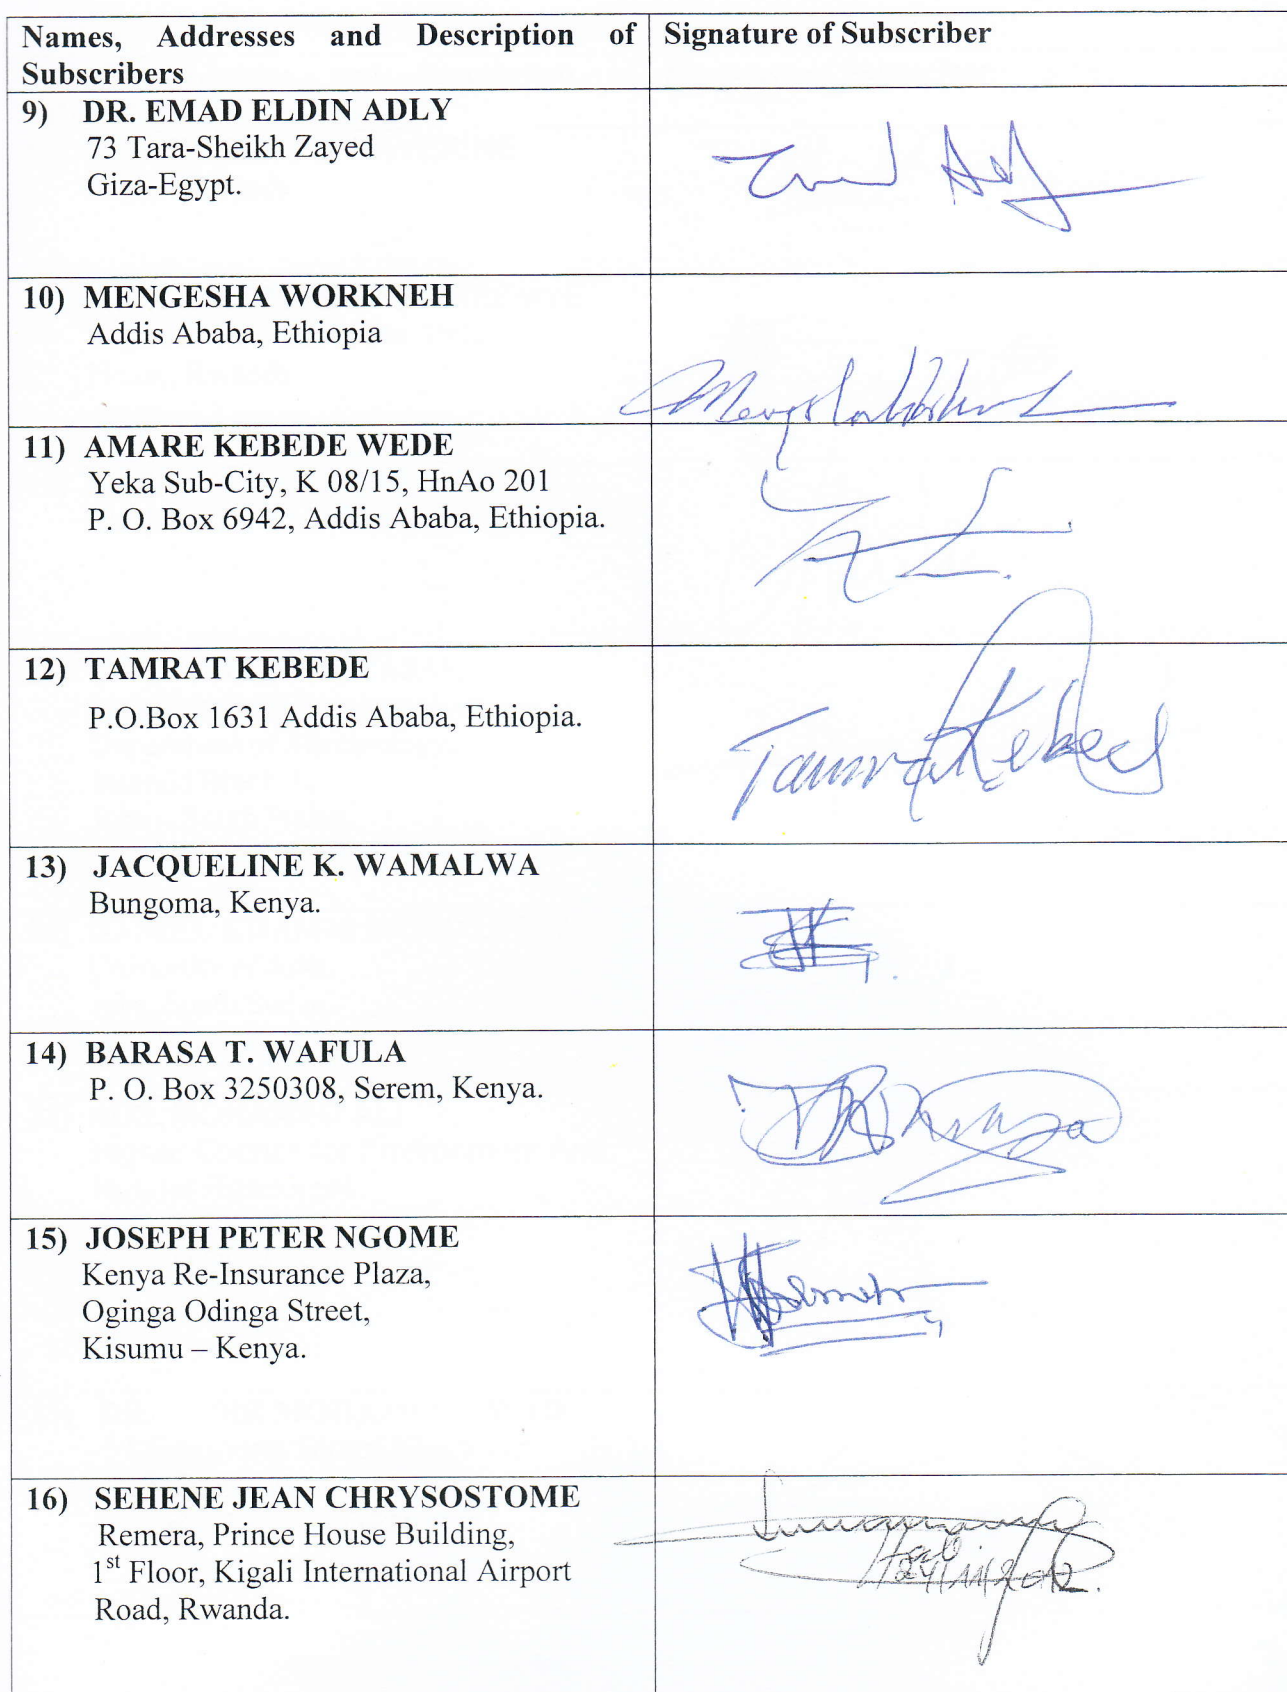 Names, Addresses and Description of Subscribers
Signature of Subscriber
9) DR. EMAD ELDIN ADLY
73 Tara-Sheikh Zayed
Giza-Egypt.
Emad Adly
10) MENGESHA WORKNEH
Addis Ababa, Ethiopia
11) AMARE KEBEDE WEDE
Yeka Sub-City, K 08/15, HnAo 201
P. O. Box 6942, Addis Ababa, Ethiopia.
12) TAMRAT KEBEDE
P.O.Box 1631 Addis Ababa, Ethiopia.
Tamrat Kebede
13) JACQUELINE K. WAMALWA
Bungoma, Kenya.
14) BARASA T. WAFULA
P. O. Box 3250308, Serem, Kenya.
15) JOSEPH PETER NGOME
Kenya Re-Insurance Plaza,
Oginga Odinga Street,
Kisumu – Kenya.
16) SEHENE JEAN CHRYSOSTOME
Remera, Prince House Building,
1st Floor, Kigali International Airport
Road, Rwanda.